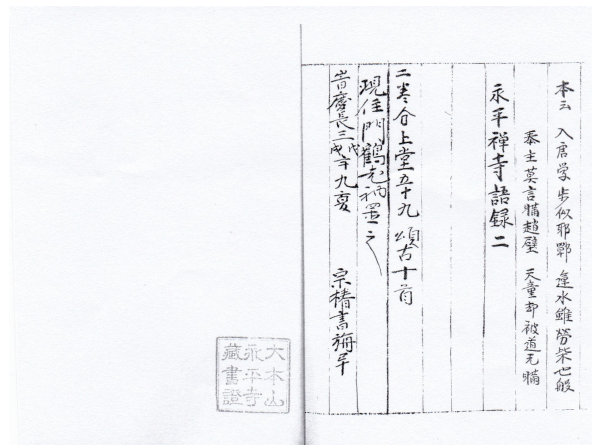 本云 入唐學步似邯鄲 運水雖勞柴也般
泰主莫言瞞趙璧 天童却被道元瞞
永平禅寺語録 二
二巻分上堂五十九 頌古十首
現住門鶴老衲置之
旹慶長三戊戌年九夏
宗椿書旃
大本山
永平寺
藏書證